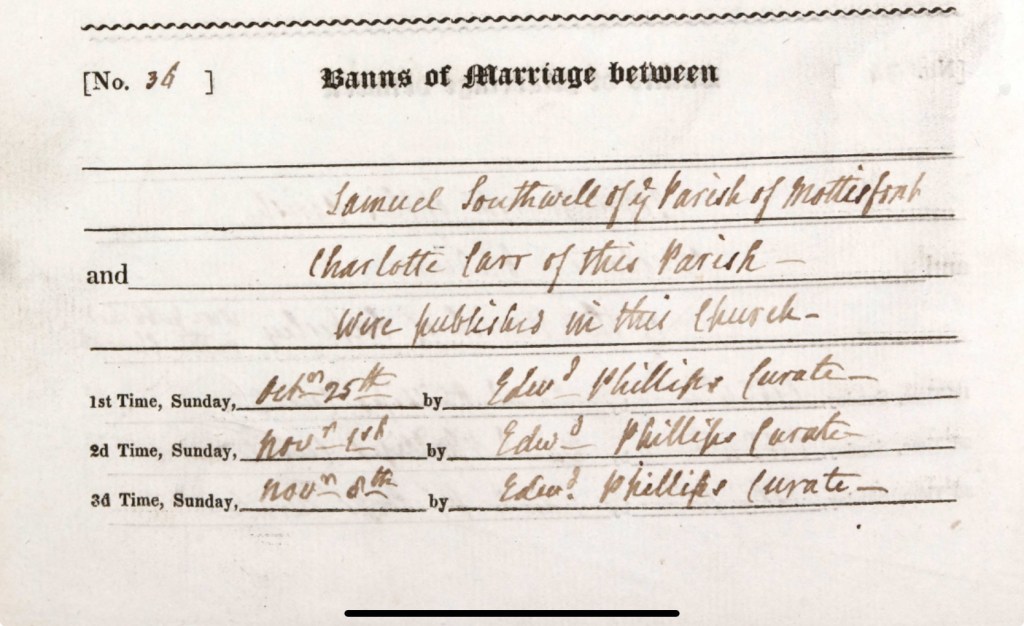 [No. 36 ] Banns of Marriage between
Samuel Southwell of yᵉ Parish of Mottisfont
and Charlotte Carr of this Parish —
Were published in this Church —
1st Time, Sunday, Octᵒʳ 25ᵗʰ by Edwᵈ Phillips Curate —
2d Time, Sunday, Novʳ 1st by Edwᵈ Phillips Curate —
3d Time, Sunday, Novʳ 8ᵗʰ by Edwᵈ. Phillips Curate —